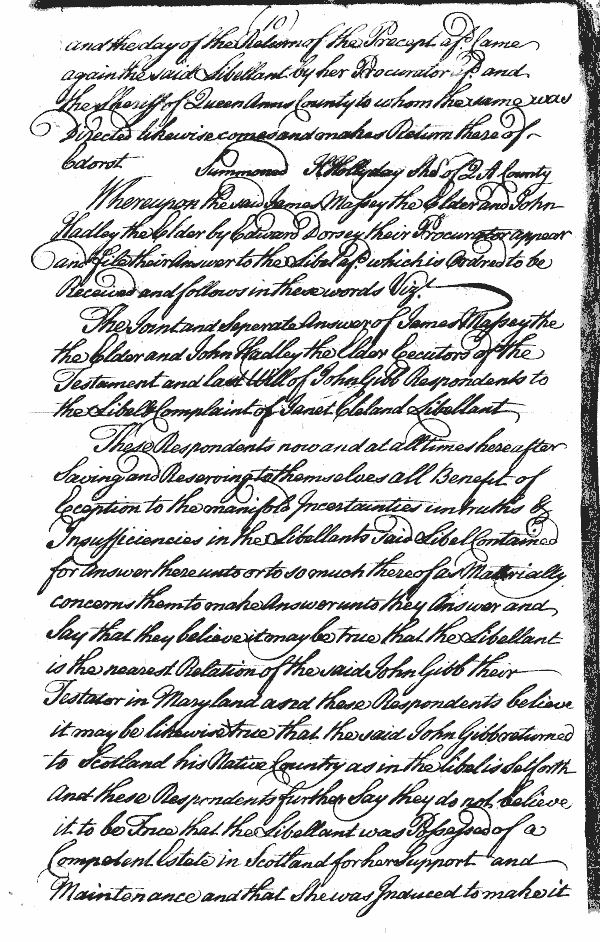 (10)
and the day of the Return of the Precept afsd. Came
again the said Libellant by her Procurator afsd. and
the Sheriff of Queen Anns County to whom the same was
Directed likewise comes and makes Return thereof
Edorst
Summoned Hollyday Shf. of Q A County
Whereupon the said James Massey the Elder and John
Hadley the Elder by Edward Dorsey their Procurator appear
and file their Answer to the Libel afsd. which is Ordred to be
Received and follows in these words Vizt.
The Joint and Seperate Answer of James Massey the
the Elder and John Hadley the Elder Eecutors of the
Testament and last Will of John Gibb Respondents to
the Libell Complaint of Janet Cleland Libellant
These Respondents now and at all times hereafter
Saving and Reserving to themselves all Benefit of
Eception to the manifold Incertainties untruths &
Insufficiencies in the Libellants Said Libel Contained
for Answer thereunto or to so much thereof as Matterially
concerns them to make Answer unto they Answer and
Say that they believe it may be true that the Libellant
is the nearest Relation of the said John Gibb their
Testator in Maryland and these Respondents believe
it may be likewise true that the said John Gibb returned
to Scotland his Native Country as in the libel is Set forth
And these Respondents further Say they do not believe
it to be Force that the Libellant was Possessed of a
Competent Estate in Scotland for her Support and
Maintenance and that She was Induced to make it